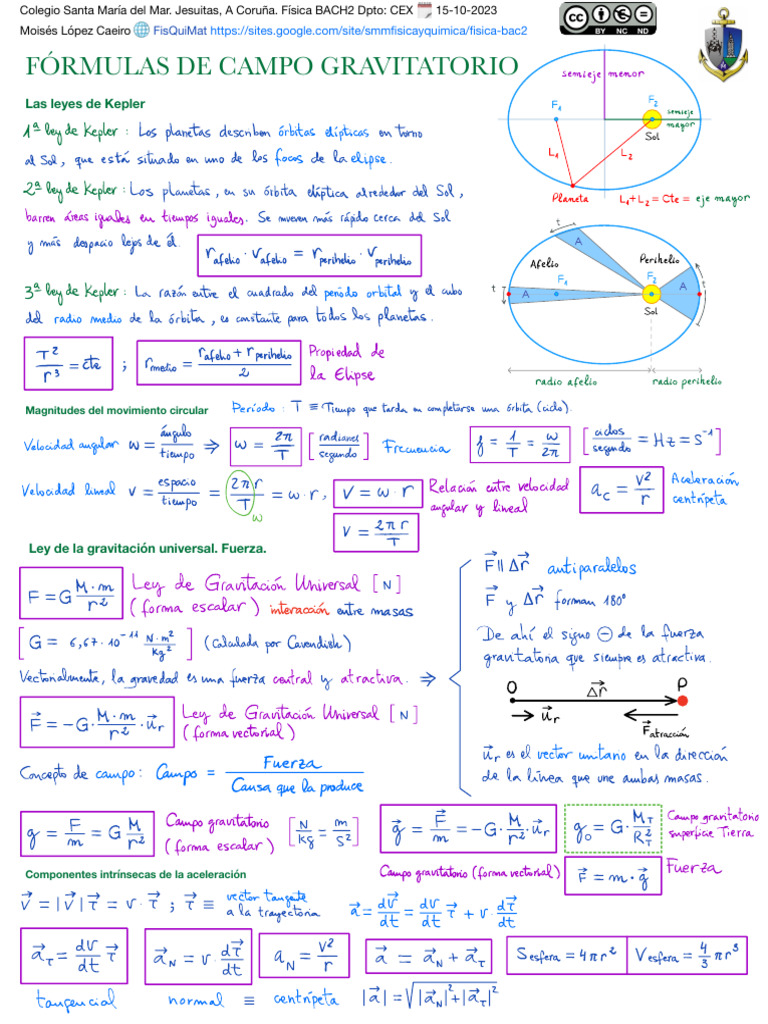 Colegio Santa María del Mar. Jesuitas, A Coruña. Física BACH2 Dpto: CEX 🗓️ 15-10-2023
Moisés López Caeiro 🌐 FisQuiMat https://sites.google.com/site/smmfisicayquimica/fisica-bac2
CC BY NC ND
FÓRMULAS DE CAMPO GRAVITATORIO
semieje menor
F₁
F₂
semieje mayor
Sol
L₁
L₂
Planeta
L₁+L₂ = Cte = eje mayor
Las leyes de Kepler
1ª ley de Kepler: Los planetas describen órbitas elípticas en torno
al Sol, que está situado en uno de los focos de la elipse.
2ª ley de Kepler: Los planetas, en su órbita elíptica alrededor del Sol,
barren áreas iguales en tiempos iguales. Se mueven más rápido cerca del Sol
y más despacio lejos de él.
r afelio · v afelio = r perihelio · v perihelio
t
A
Afelio
Perihelio
F₁
F₂
t
A
A
t
Sol
radio afelio
radio perihelio
3ª ley de Kepler: La razón entre el cuadrado del período orbital y el cubo
del radio medio de la órbita, es constante para todos los planetas.
T²/r³ = cte ; r medio = (r afelio + r perihelio)/2 Propiedad de
la Elipse
Magnitudes del movimiento circular Período: T ≡ Tiempo que tarda en completarse una órbita (ciclo).
Velocidad angular w = ángulo/tiempo ⇒ w = 2π/T [radianes/segundo] Frecuencia f = 1/T = w/2π [ciclos/segundo = Hz = s⁻¹]
Velocidad lineal v = espacio/tiempo = 2πr/T = w·r, v = w·r Relación entre velocidad
angular y lineal
w
a_c = v²/r Aceleración
centrípeta
v = 2πr/T
Ley de la gravitación universal. Fuerza.
F = G M·m/r² Ley de Gravitación Universal [N]
(forma escalar) interacción entre masas
[G = 6,67·10⁻¹¹ N·m²/kg²] (calculada por Cavendish)
Vectorialmente, la gravedad es una fuerza central y atractiva. ⇒
F⃗ = -G·M·m/r²·u⃗r Ley de Gravitación Universal [N]
(forma vectorial)
F⃗ || Δr⃗ antiparalelos
F⃗ y Δr⃗ forman 180º
De ahí el signo ⊖ de la fuerza
gravitatoria que siempre es atractiva.
O Δr⃗ P
u⃗r F⃗ atracción
u⃗r es el vector unitario en la dirección
de la línea que une ambas masas.
Concepto de campo: Campo = Fuerza/Causa que la produce
g = F/m = G M/r² Campo gravitatorio
(forma escalar) [N/kg = m/s²]
g⃗ = F⃗/m = -G·M/r²·u⃗r
g₀ = G·M_T/R_T² Campo gravitatorio
superficie Tierra
Campo gravitatorio (forma vectorial) F⃗ = m·g⃗ Fuerza
Componentes intrínsecas de la aceleración
v⃗ = |v⃗| τ⃗ = v·τ⃗ ; τ⃗ ≡ vector tangente
a la trayectoria
a⃗ = dv⃗/dt = dv/dt τ⃗ + v·dτ⃗/dt
a⃗_τ = dv/dt τ⃗
a⃗_N = v·dτ⃗/dt
a_N = v²/r
a⃗ = a⃗_N + a⃗_τ
S esfera = 4πr²
V esfera = 4/3 πr³
tangencial normal ≡ centrípeta |a⃗| = √(|a⃗_N|² + |a⃗_τ|²)